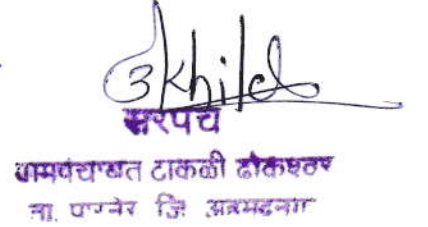 सरपंच
ग्रामपंचायत टाकळी ढोकेश्वर
ता. पारनेर जि. अहमदनगर